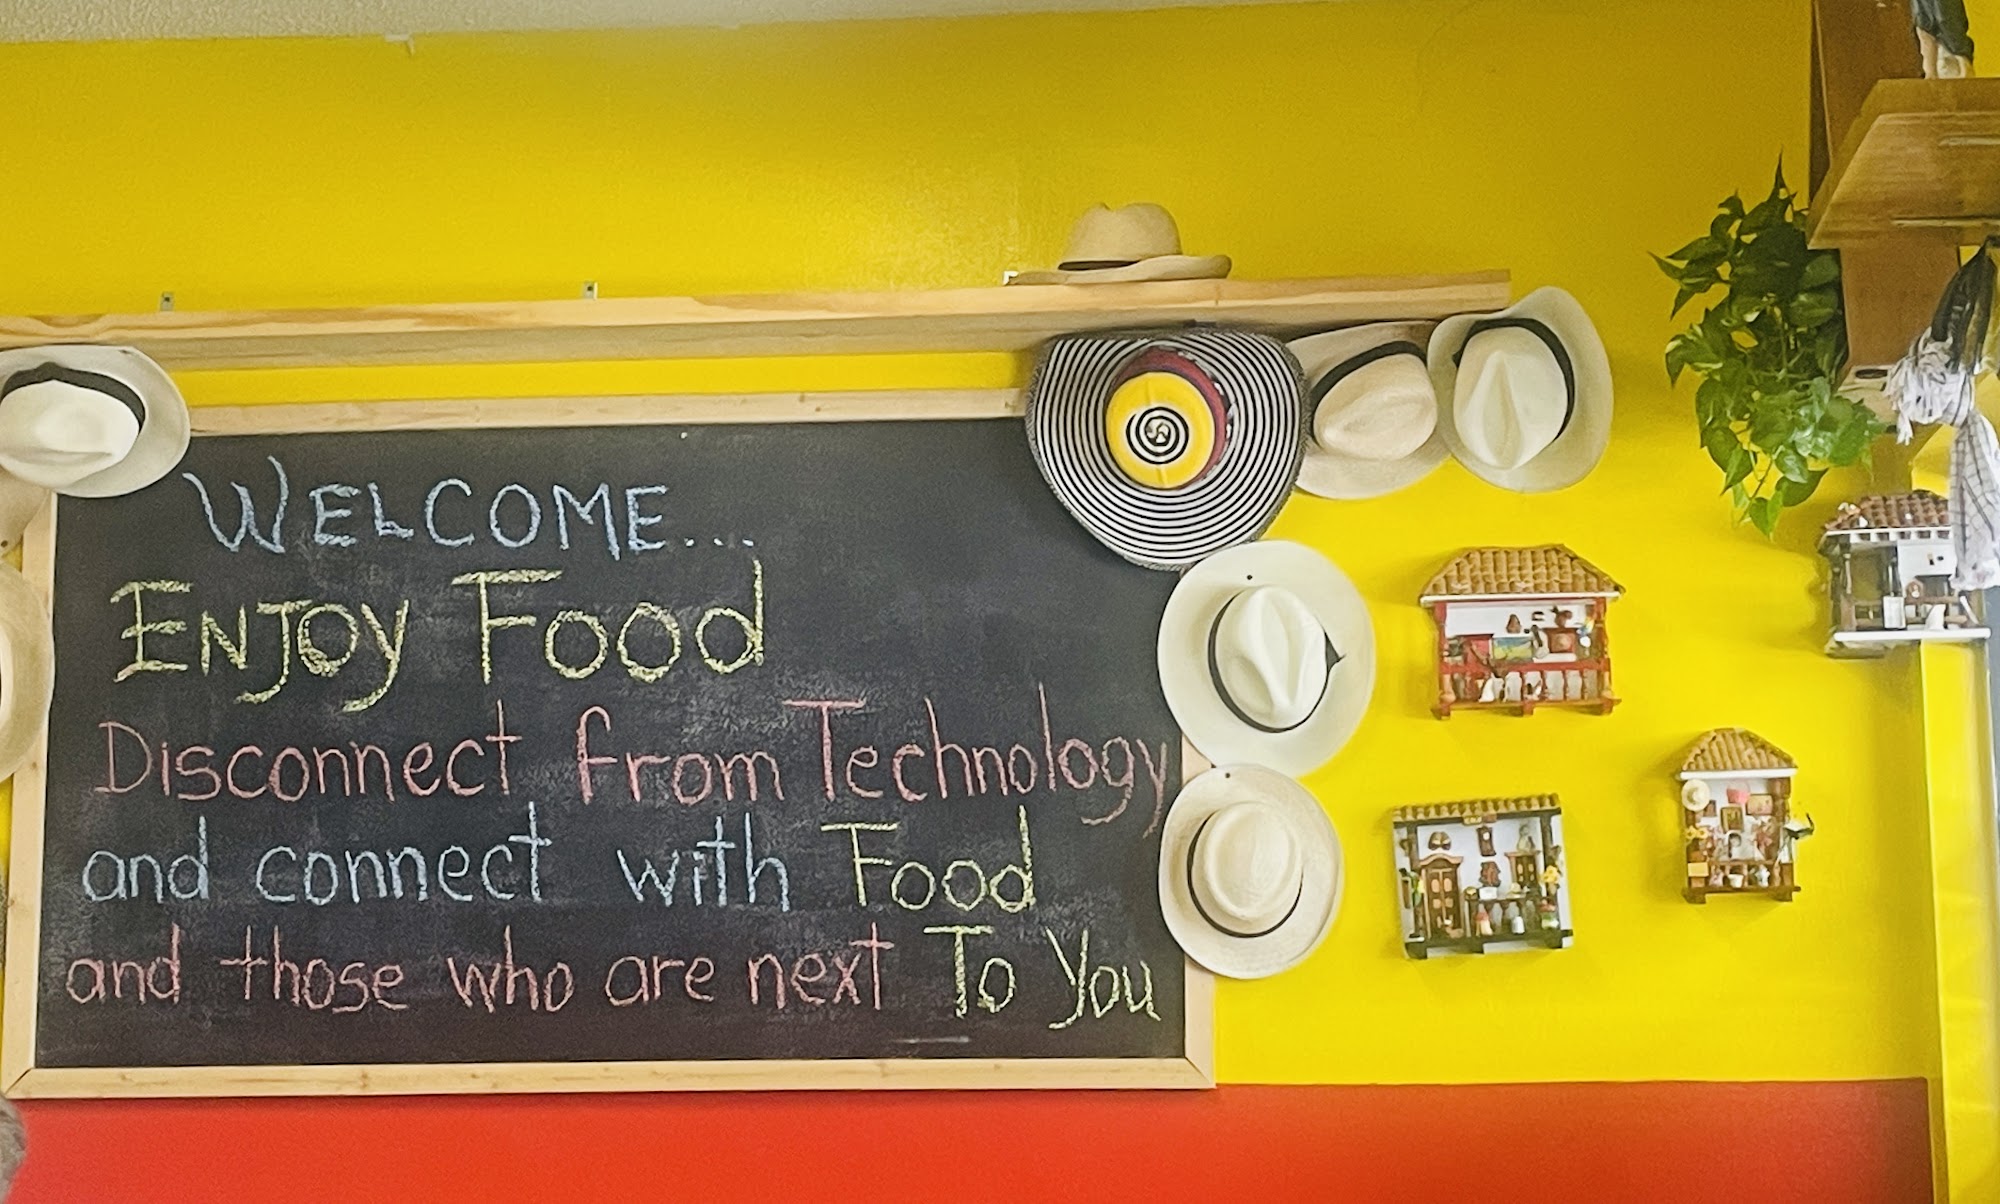 WELCOME...
ENJOY FOOd
Disconnect from Technology
and connect with Food
and those who are next To You